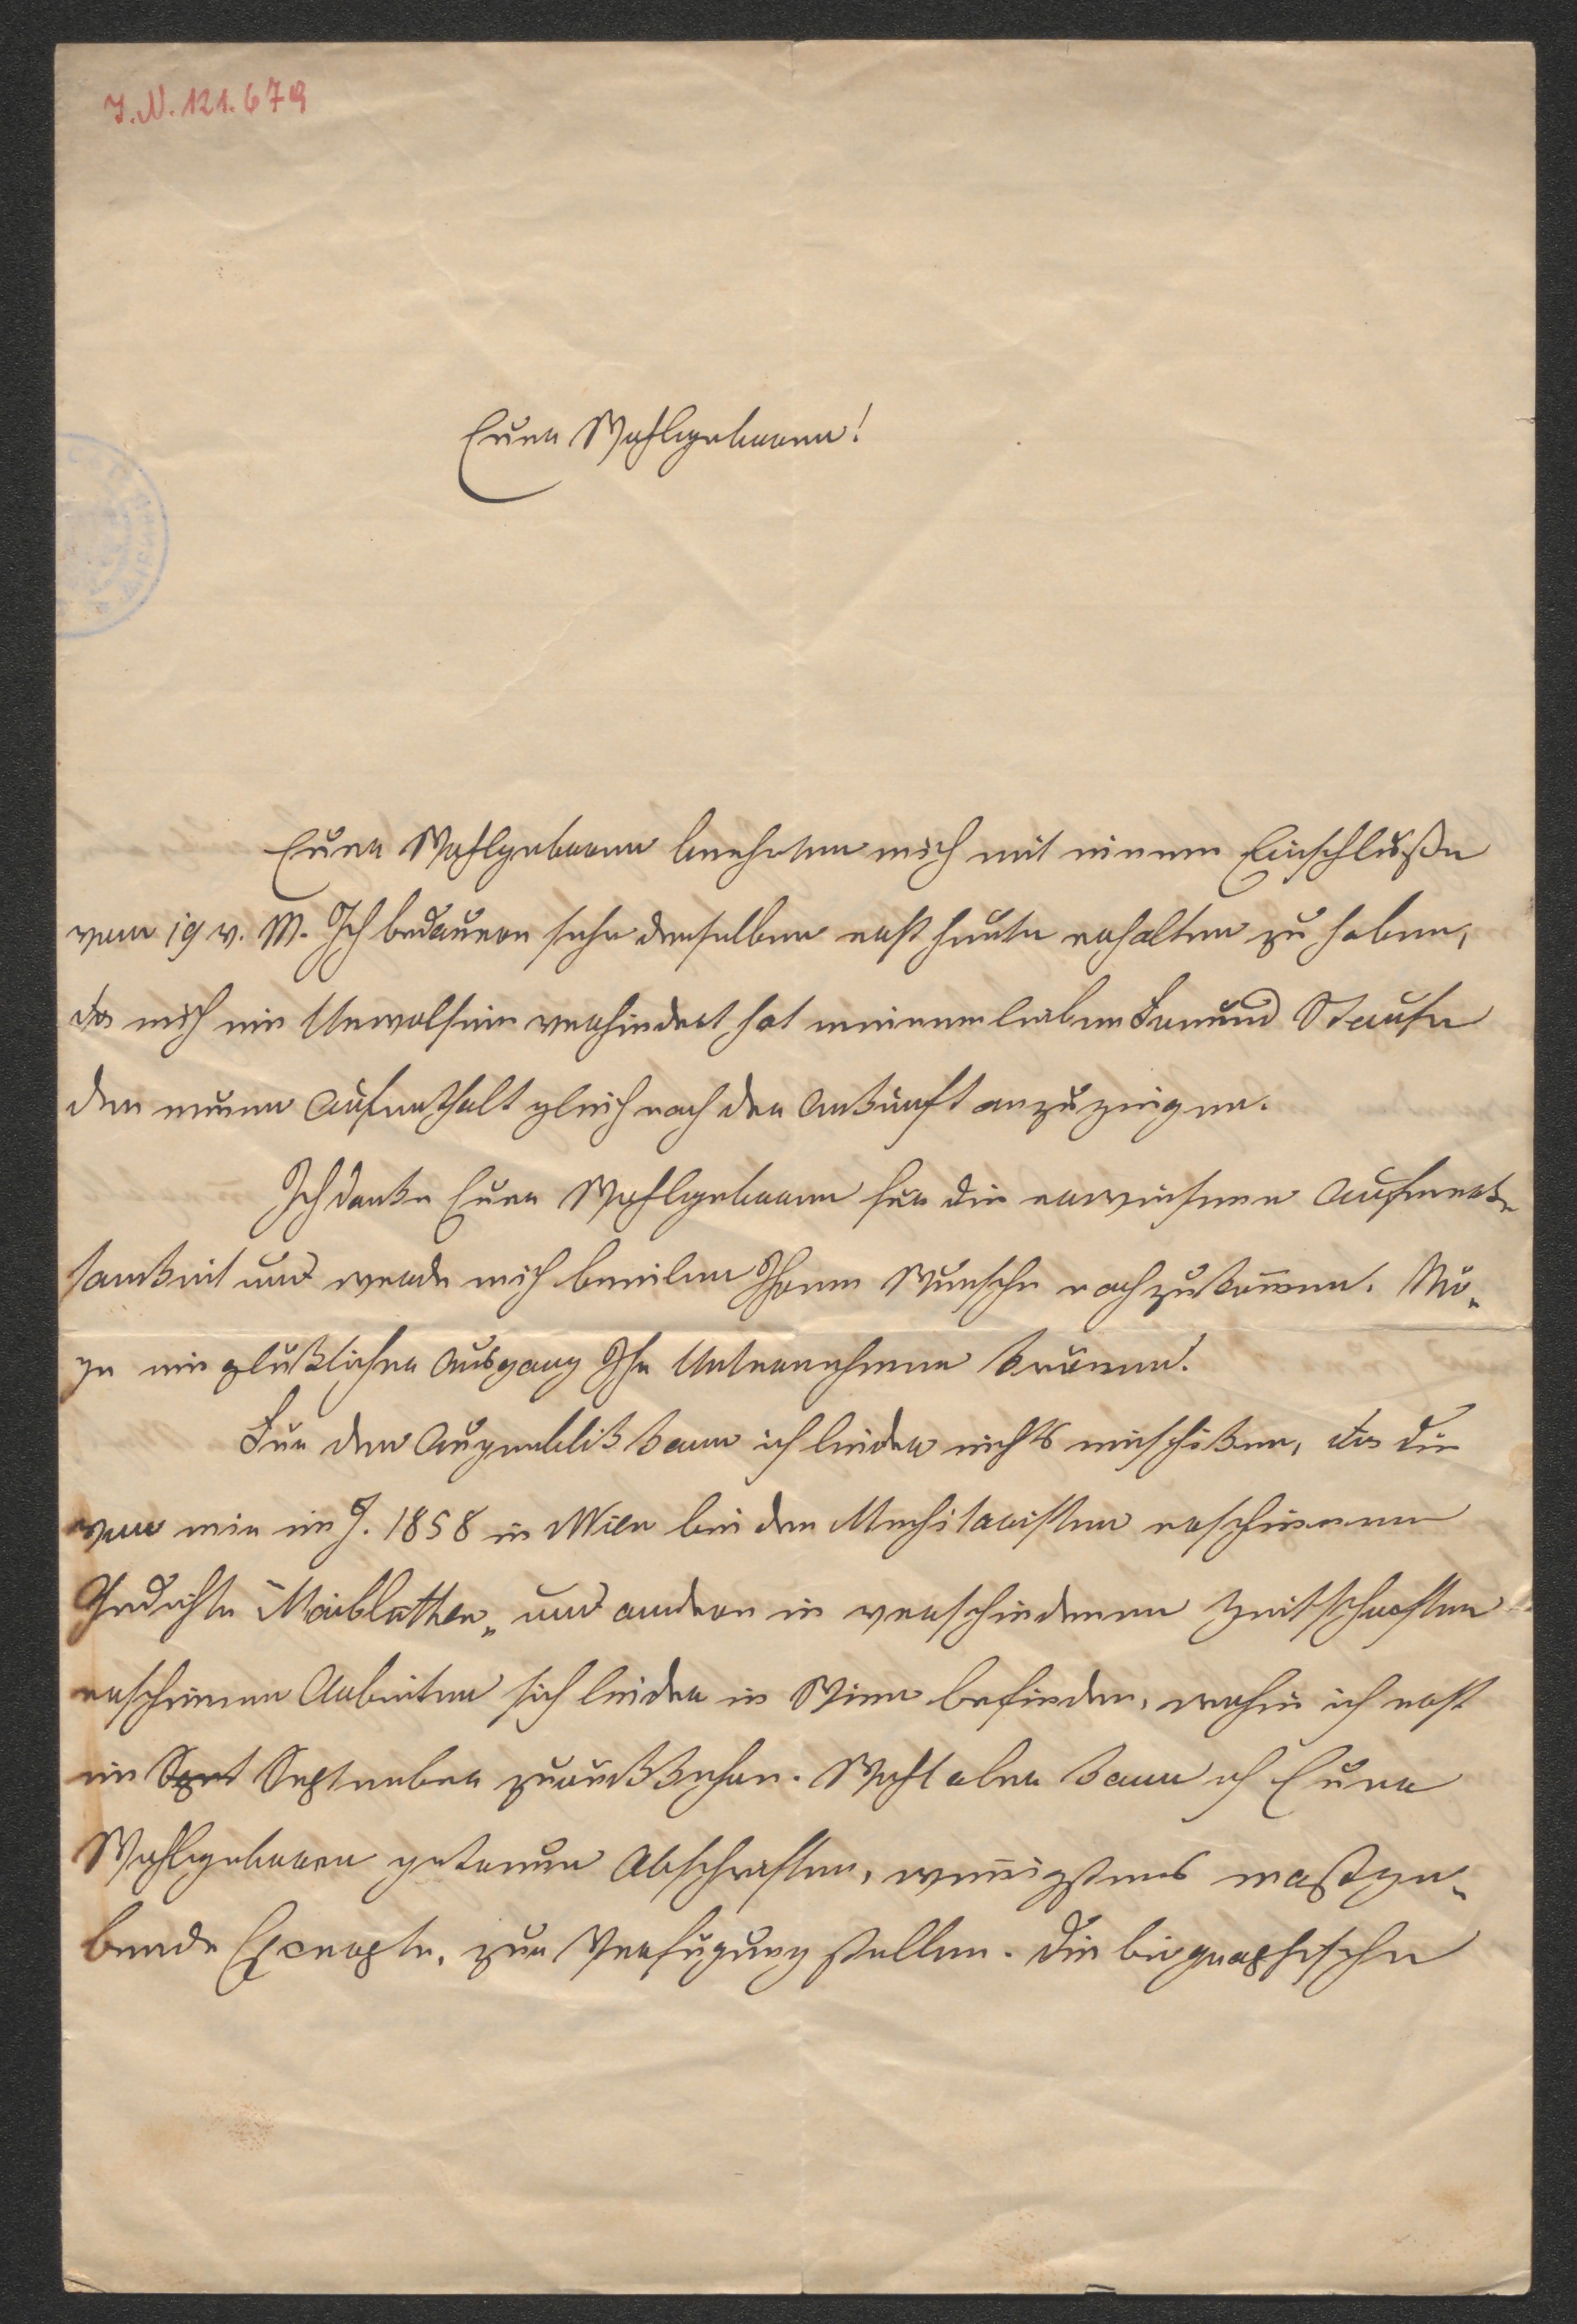 I.N. 121.679
Euer Wohlgeboren!
Euer Wohlgeboren beehrten mich mit einem Einschluße
vom 19 v. M. Ich bedauere sehr denselben erst heute erhalten zu haben,
da mich ein Unwolsein verhindert hat meinem lieben Freund Staufe
den neuen Aufenthalt gleich nach der Ankunft anzuzeigen.
Ich danke Euer Wohlgeboren für die erwiesene Aufmerk-
samkeit und werde mich beeilen Ihrem Wunsche nachzukommen. Mö-
ge ein glücklicher Ausgang Ihr Unternehmen krönen!
Für den Augenblick kann ich leider nichts einschicken, da die
von mir im J. 1858 in Wien bei den Mechitaristen erschienenen
Gedichte "Maiblätter" und andere in verschiedenen Zeitschriften
erschienen Arbeiten sich leider in Wien befinden, wohin ich erst
im Sept September zurückkehre. Wohl aber kann ich Euer
Wohlgeboren getreue Abschriften, wenigstens maßge-
bende Excerpte, zur Verfügung stellen. Die biographische